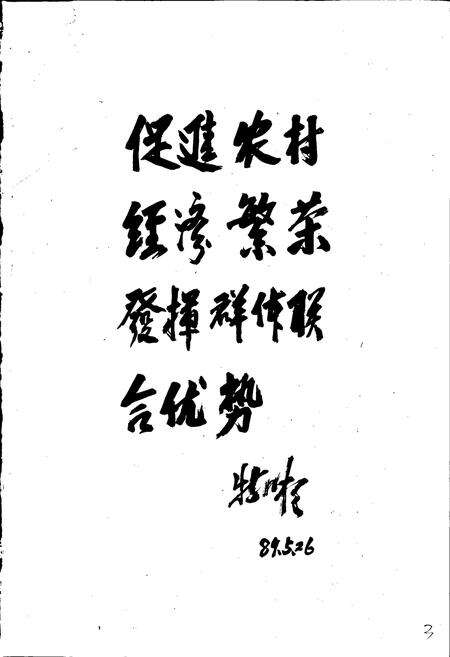 促進农村
经济繁荣
發揮群体联
合优势
89.5.26
3